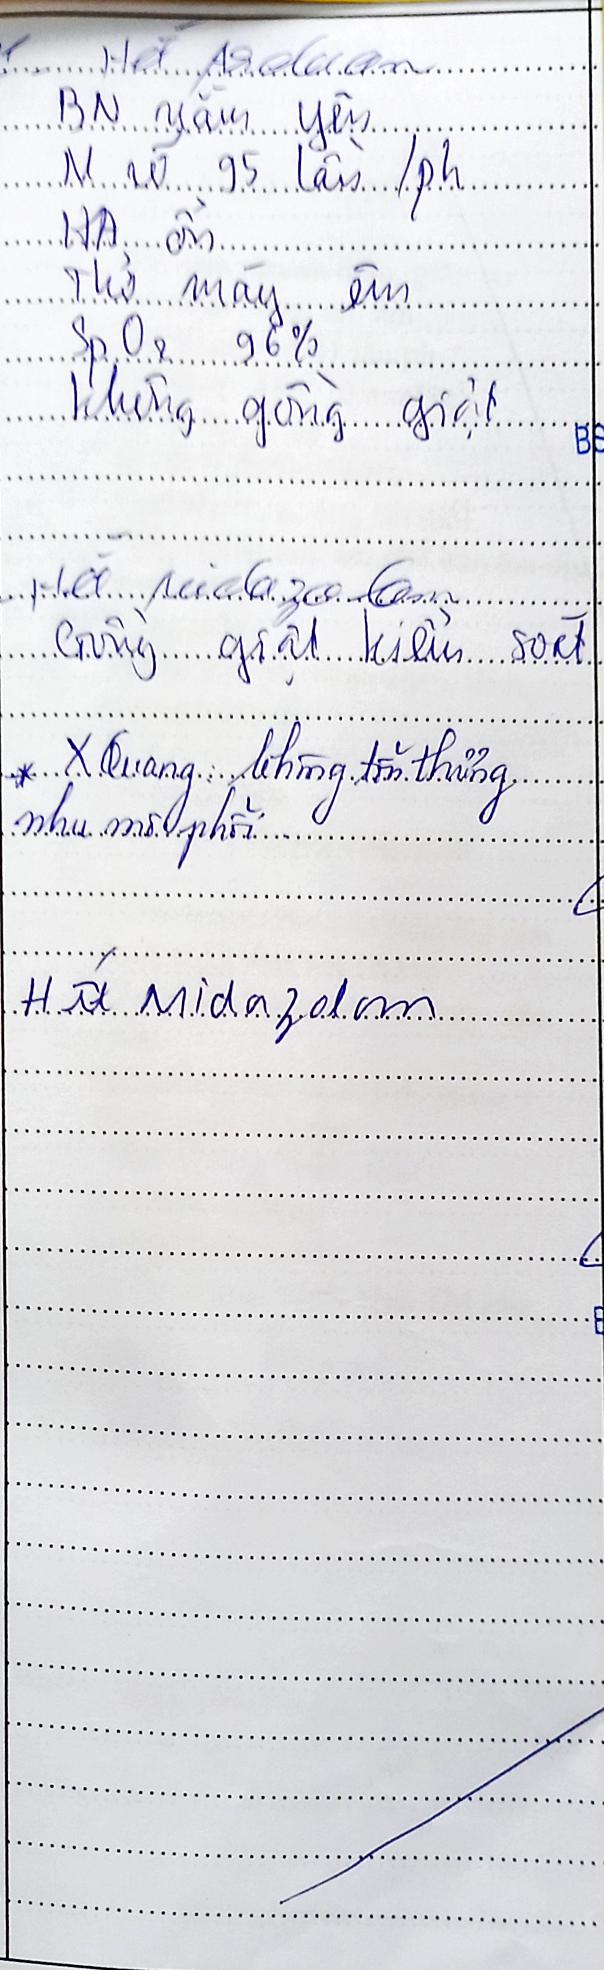 Hết Arduan
BN nằm yên
M rõ 95 lần/ph
HA ổn
Thở máy êm
SpO2 96%
Không gồng giật
BS
Hết Midazolam
Gồng giật kiểm soát
* X Quang: không tổn thương
nhu mô phổi
Hết Midazolam